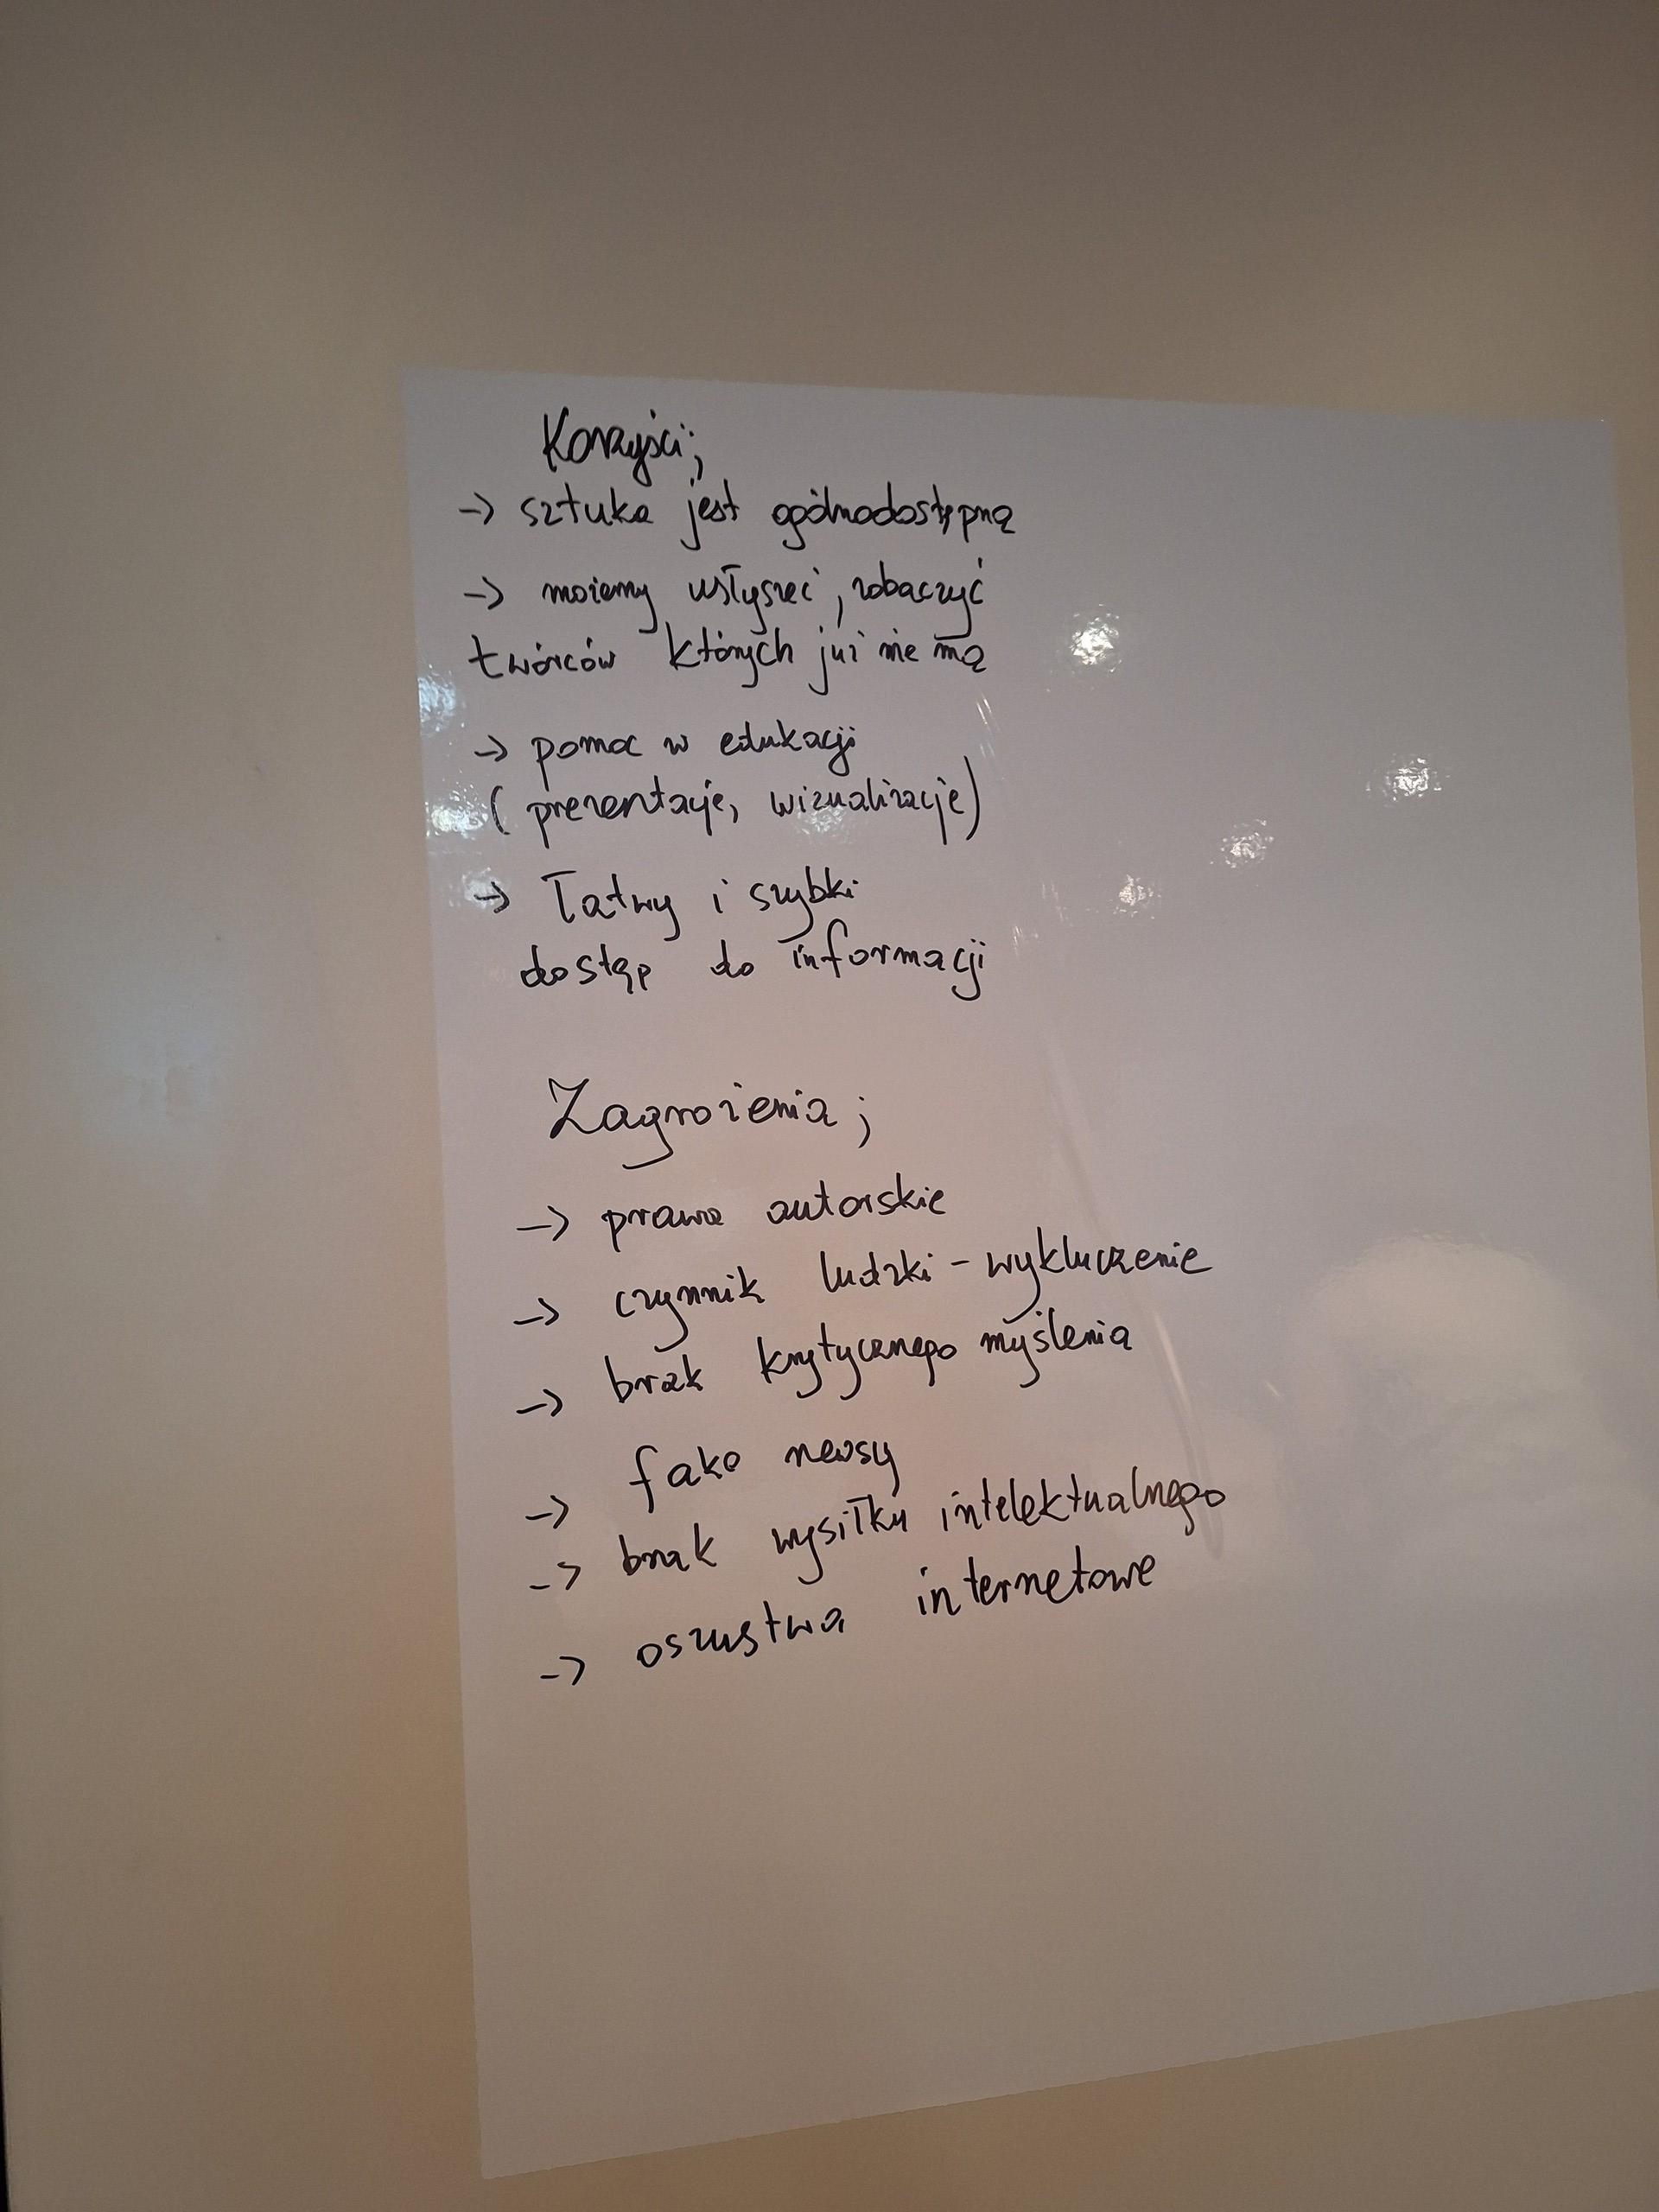 Korzyści;
-> sztuka jest ogólnodostępną
-> możemy usłyszeć, zobaczyć
twórców których już nie mą
-> pomoc w edukacji
(prezentacje, wizualizacje)
-> łatwy i szybki
dostęp do informacji
Zagrożenia;
-> prawa autorskie
-> czynnik ludzki - wykluczenie
-> brak krytycznego myślenia
-> fake newsy
-> brak wysiłku intelektualnego
-> oszustwa internetowe